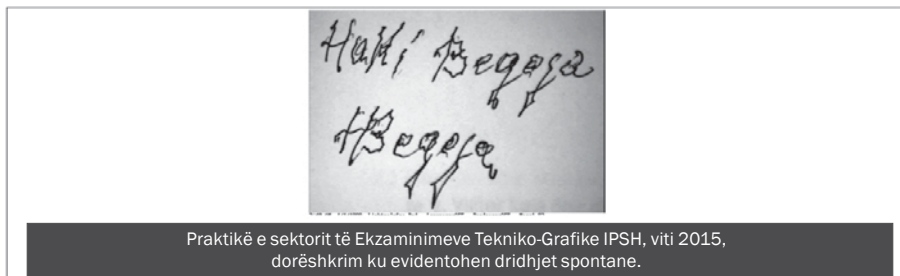 Haki Beqeja
HBeqeja
Praktikë e sektorit të Ekzaminimeve Tekniko-Grafike IPSH, viti 2015,
dorëshkrim ku evidentohen dridhjet spontane.